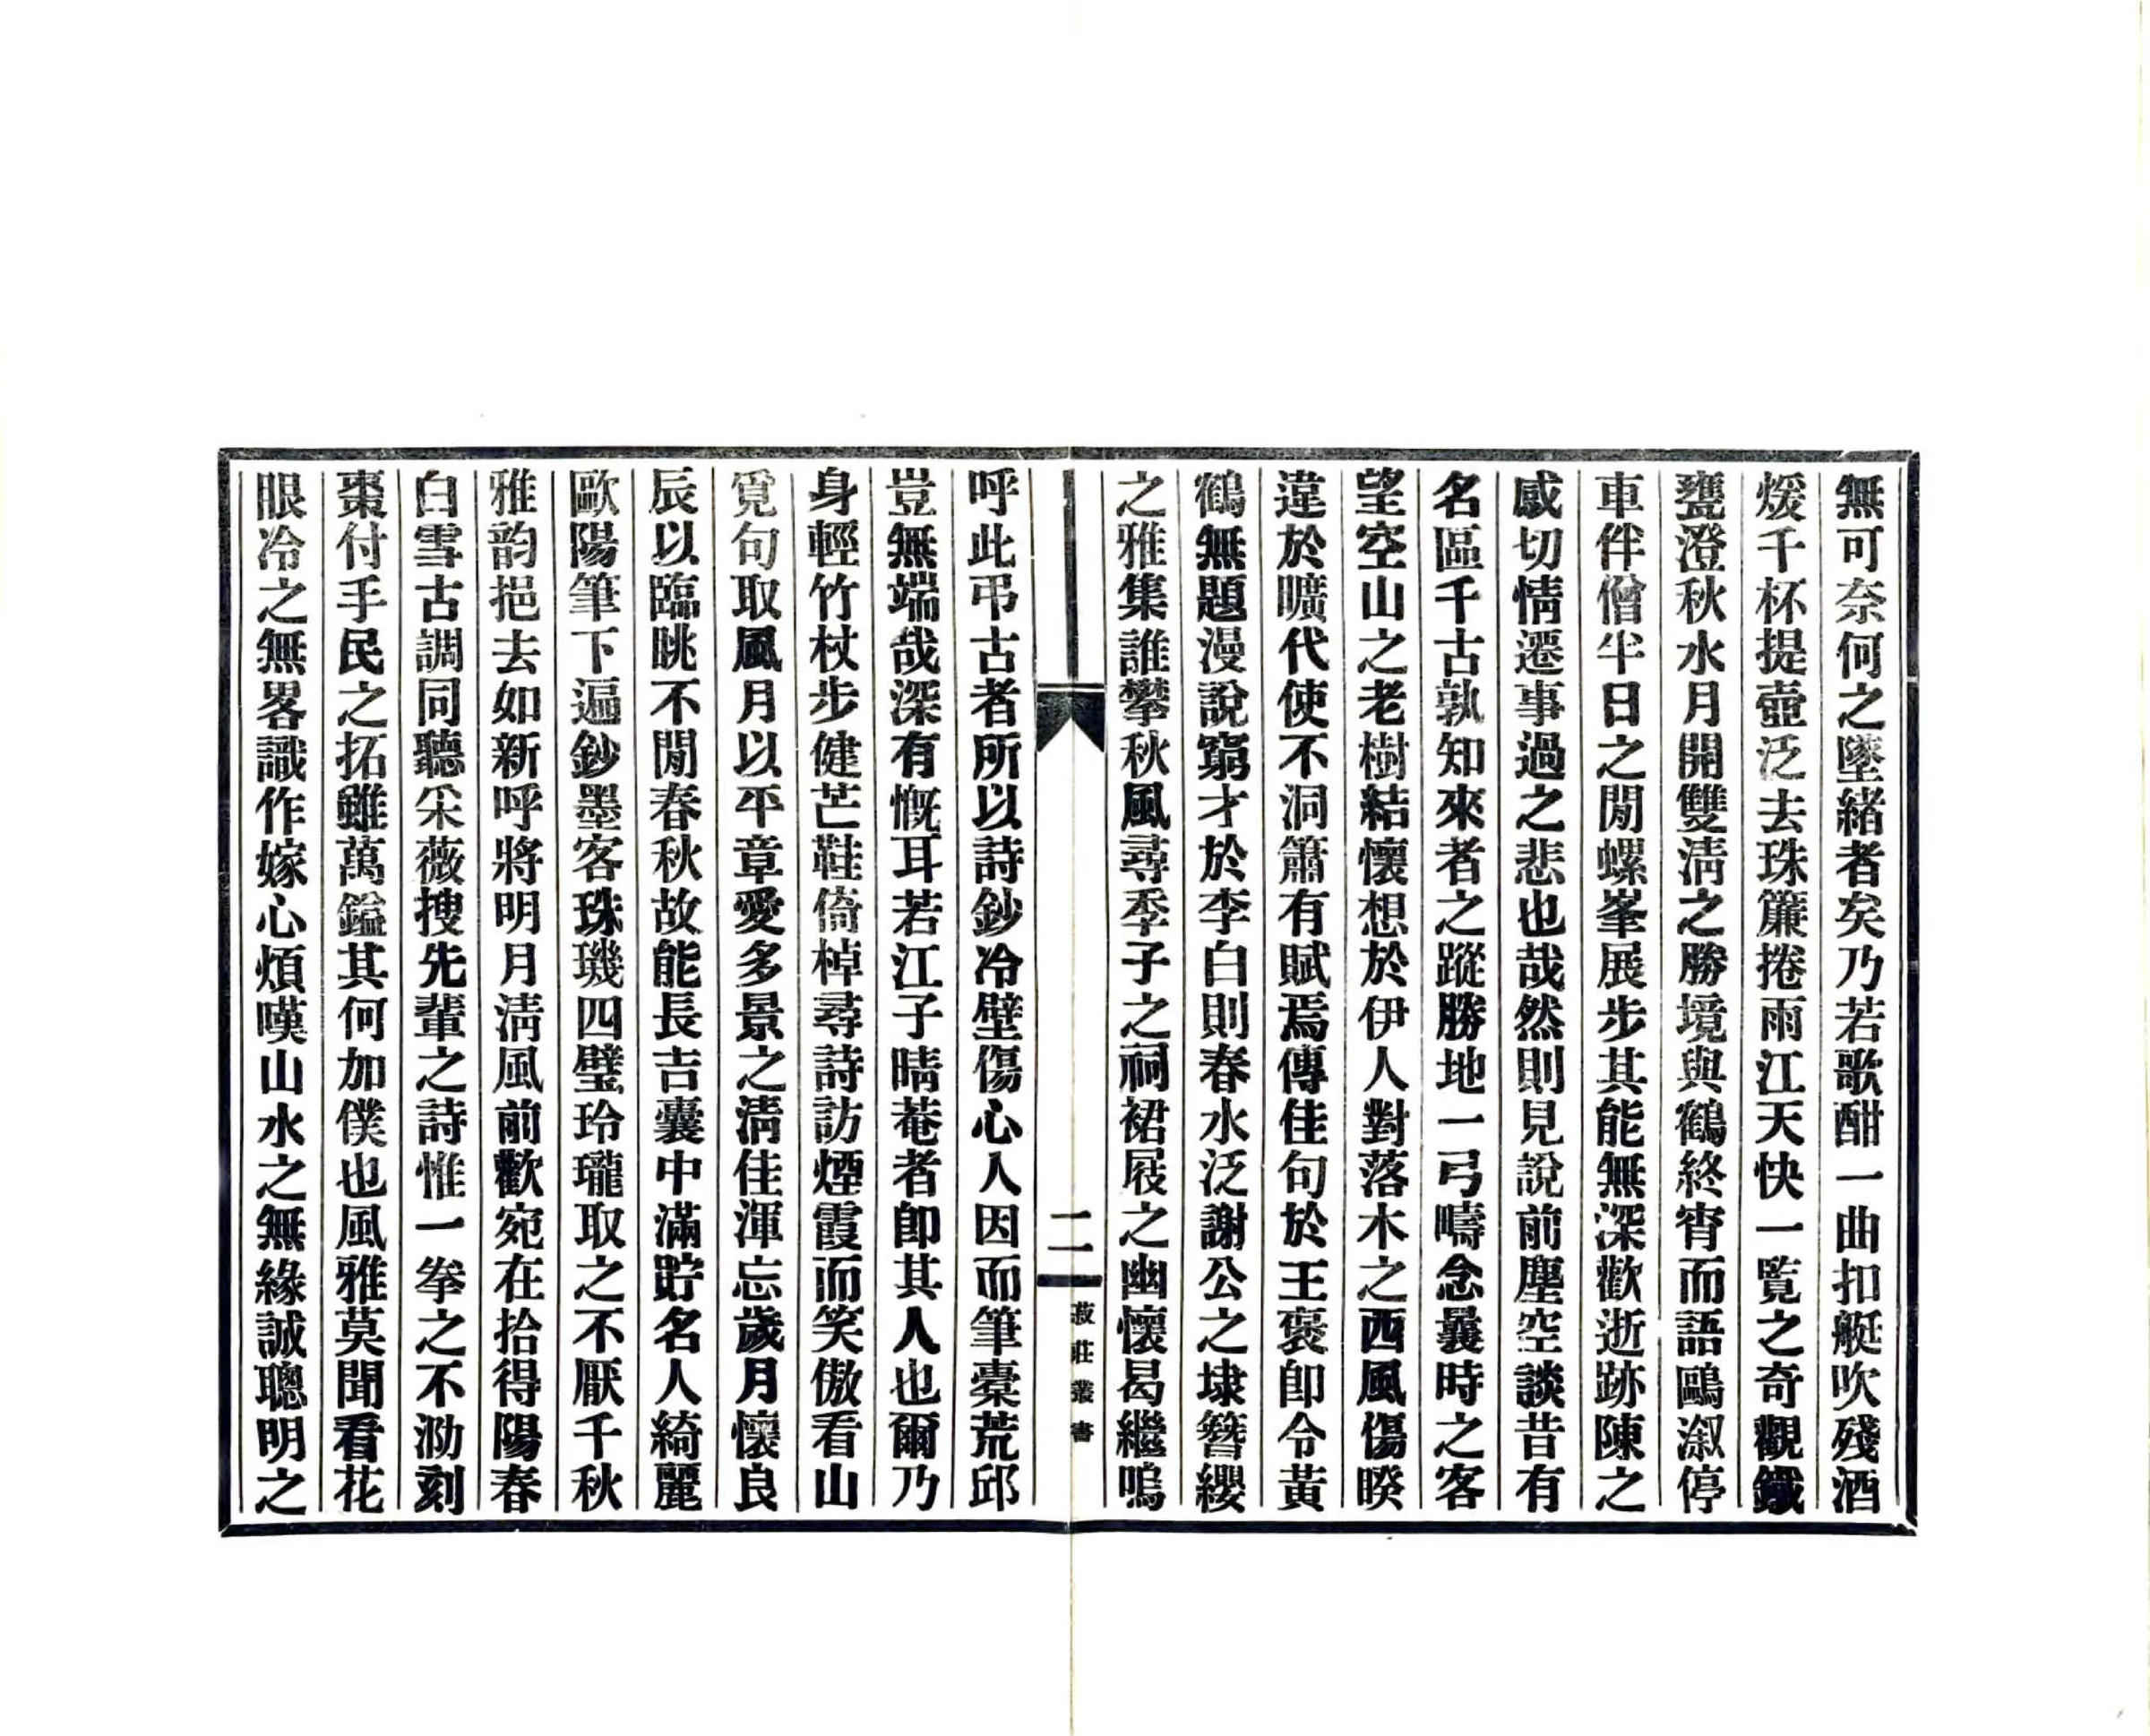 無可奈何之墜緒者矣乃若歌酣一曲扣艇吹殘酒
煖千杯提壺泛去珠簾捲雨江天快一覽之奇觀鐵
甕澄秋水月開雙淸之勝境與鶴終宵而語鷗溆停
車伴僧半日之閒螺峯展步其能無深歡逝跡陳之
感切情遷事過之悲也哉然則見說前塵空談昔有
名區千古孰知來者之蹤勝地一弓疇念曩時之客
望空山之老樹結懷想於伊人對落木之西風傷睽
違於曠代使不洞簫有賦焉傳佳句於王褒卽令黃
鶴無題漫說窮才於李白則春水泛謝公之埭簪纓
之雅集誰攀秋風尋季子之祠裙屐之幽懷曷繼嗚
二
菽莊叢書
呼此弔古者所以詩鈔冷壁傷心人因而筆橐荒邱
豈無端哉深有慨耳若江子晴菴者卽其人也爾乃
身輕竹杖步健芒鞋倚棹尋詩訪煙霞而笑傲看山
覓句取風月以平章愛多景之淸佳渾忘歲月懷良
辰以臨眺不閒春秋故能長吉囊中滿貯名人綺麗
歐陽筆下遍鈔墨客珠璣四璧玲瓏取之不厭千秋
雅韵挹去如新呼將明月淸風前歡宛在拾得陽春
白雪古調同聽采薇搜先輩之詩惟一拳之不泐刻
棗付手民之拓雖萬鎰其何加僕也風雅莫聞看花
眼冷之無畧識作嫁心煩嘆山水之無緣誠聰明之